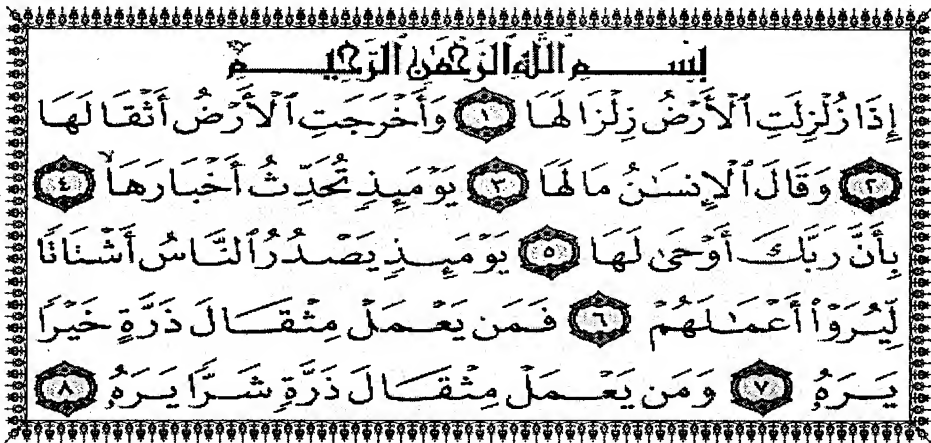 بِسْمِ ٱللَّهِ ٱلرَّحْمَٰنِ ٱلرَّحِيمِ
إِذَا زُلْزِلَتِ ٱلْأَرْضُ زِلْزَالَهَا ١ وَأَخْرَجَتِ ٱلْأَرْضُ أَثْقَالَهَا
٢ وَقَالَ ٱلْإِنسَٰنُ مَا لَهَا ٣ يَوْمَئِذٍ تُحَدِّثُ أَخْبَارَهَا ٤
بِأَنَّ رَبَّكَ أَوْحَىٰ لَهَا ٥ يَوْمَئِذٍ يَصْدُرُ ٱلنَّاسُ أَشْتَاتًا
لِّيُرَوْا۟ أَعْمَٰلَهُمْ ٦ فَمَن يَعْمَلْ مِثْقَالَ ذَرَّةٍ خَيْرًا
يَرَهُۥ ٧ وَمَن يَعْمَلْ مِثْقَالَ ذَرَّةٍ شَرًّا يَرَهُۥ ٨